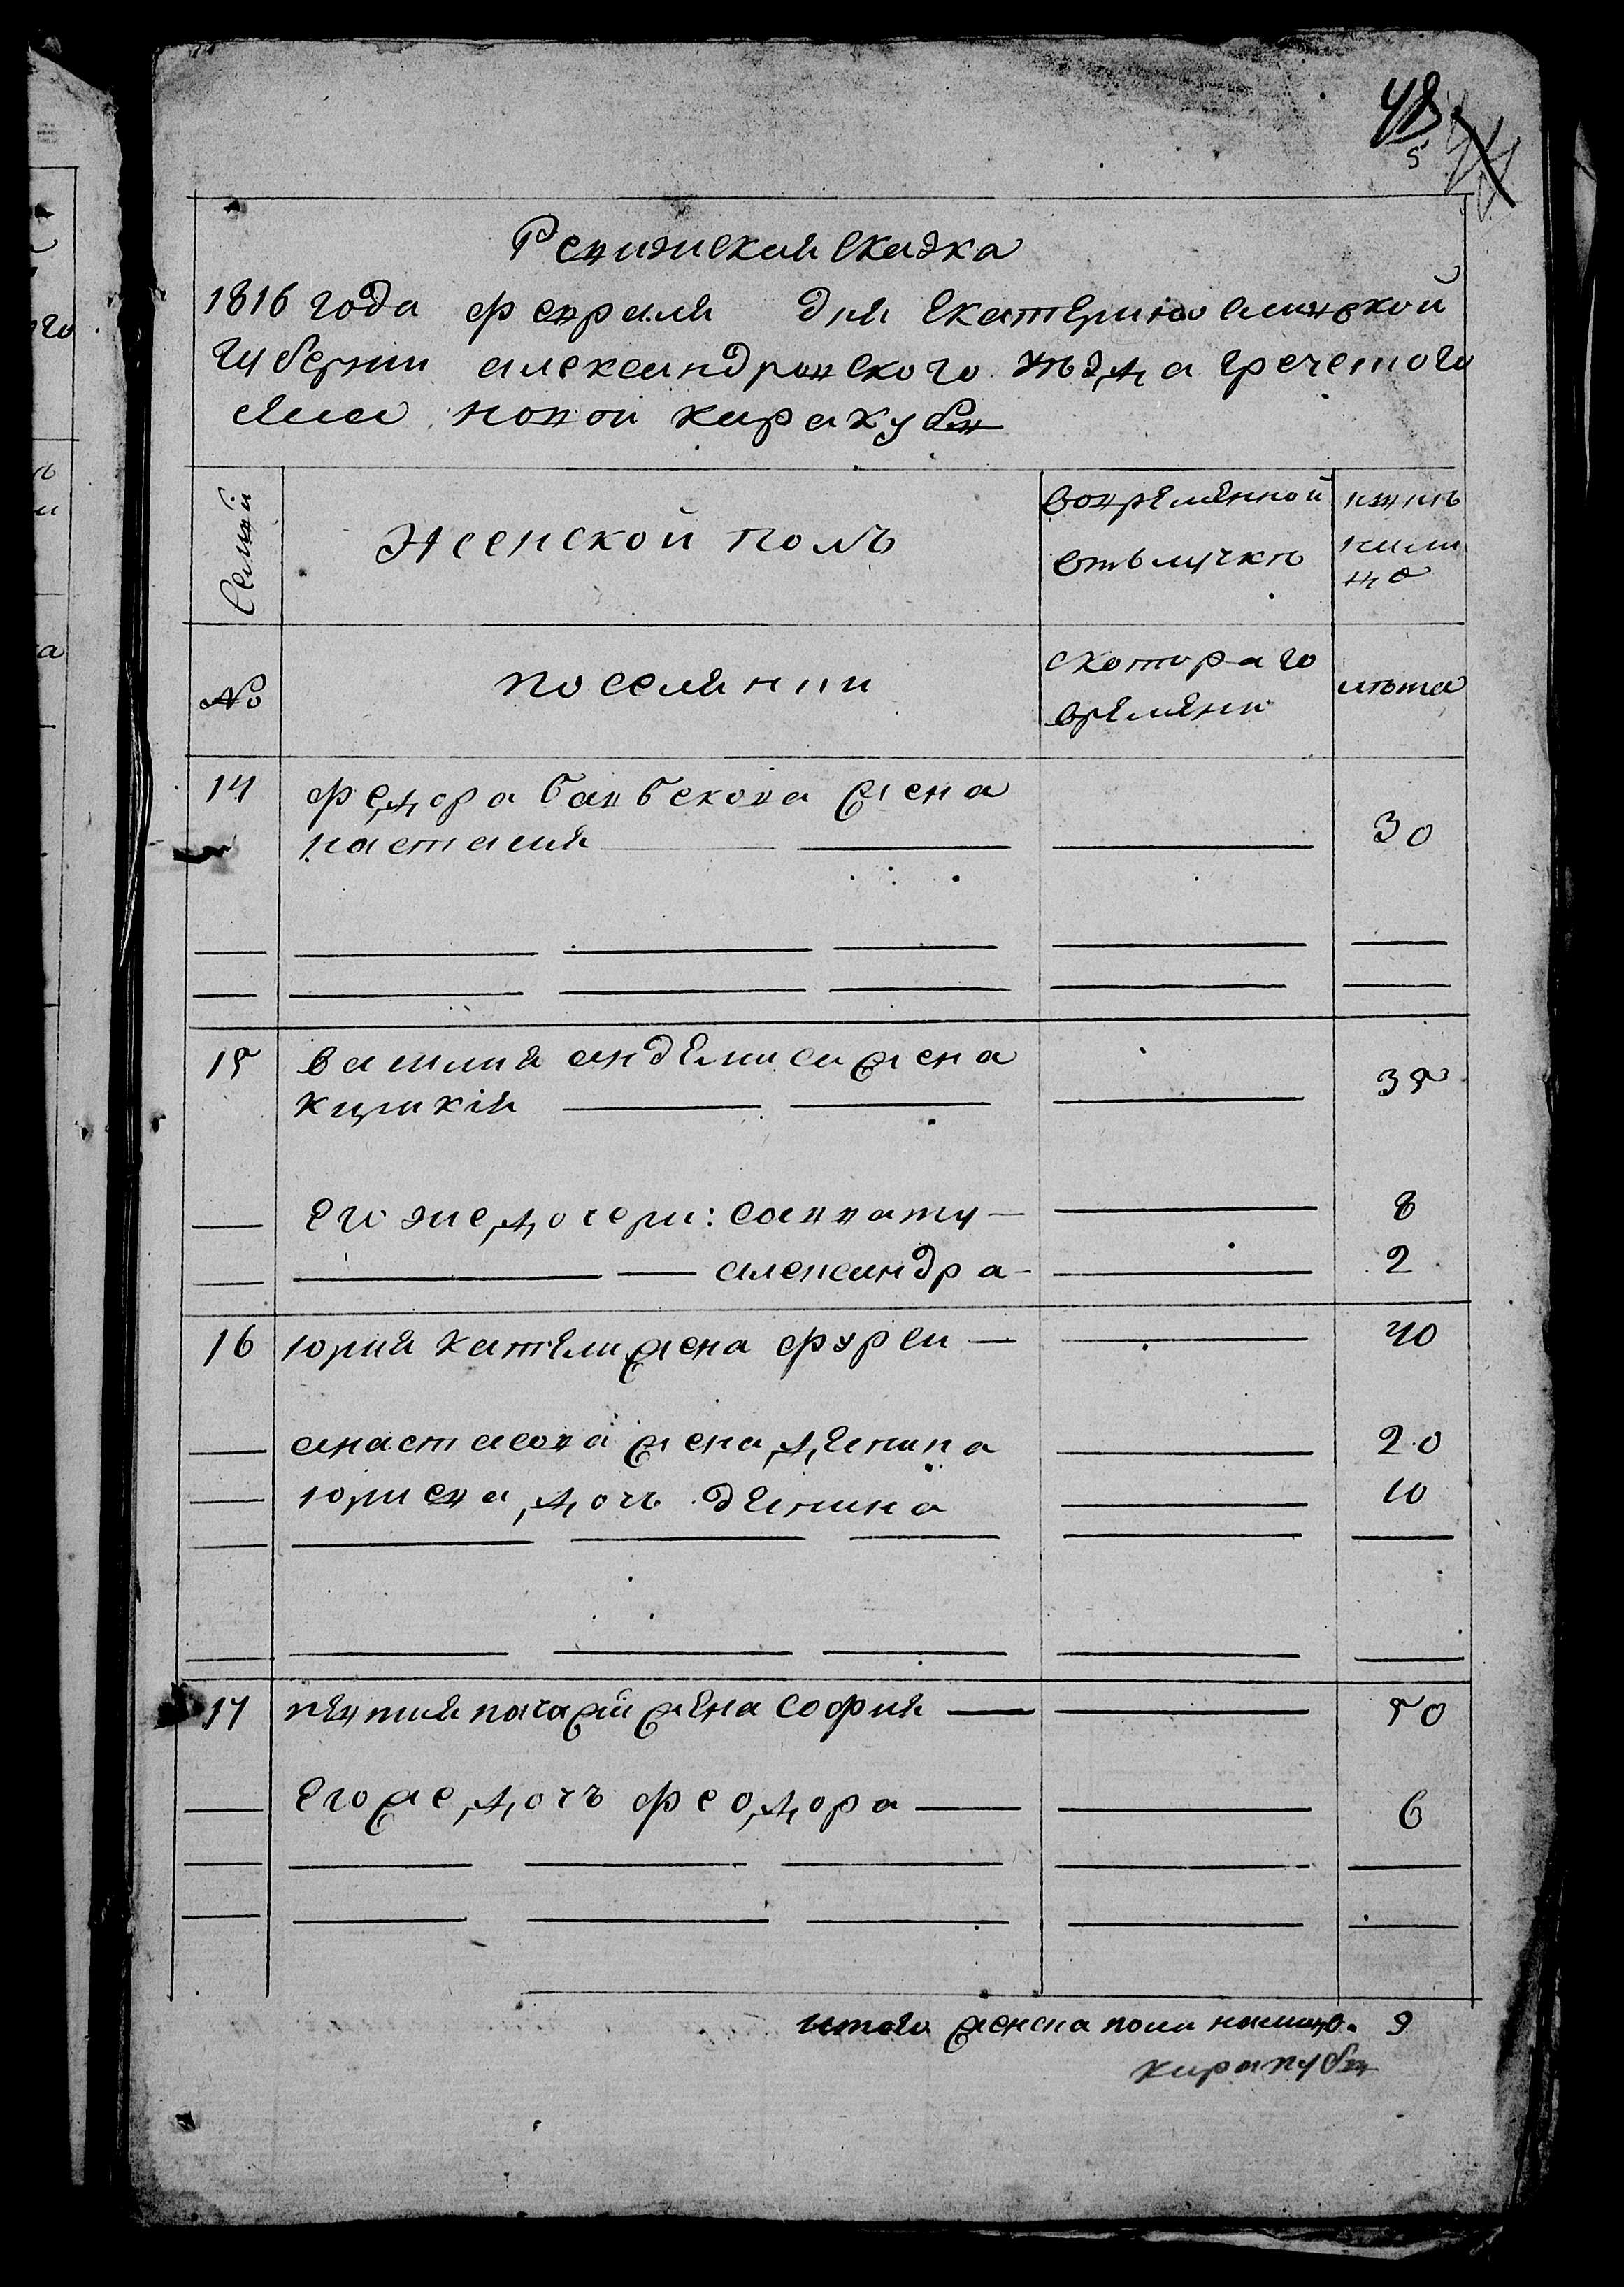 48
5
Ревизская сказка
1816 года февраля дня Екатеринославской
губернии александровского уѣзда греческого
села новой каракубы
Семьи
Женской полъ
вовремянной
отълучкѣ
нынѣ
нали
цо
№
поселянии
скотораго
времяни
лѣта
14
федора бавбекова жена
настасия
30
15
василия анделиса жена
кирикія
35
его же дочери: савату
8
александра
2
16
юрия кателижена фурси
40
анастасова жена деспина
20
юриева дочь деспина
10
17
пантия пачажи жена софия
50
его же дочъ феодора
6
итого женска пола налицо. 9
каракубы